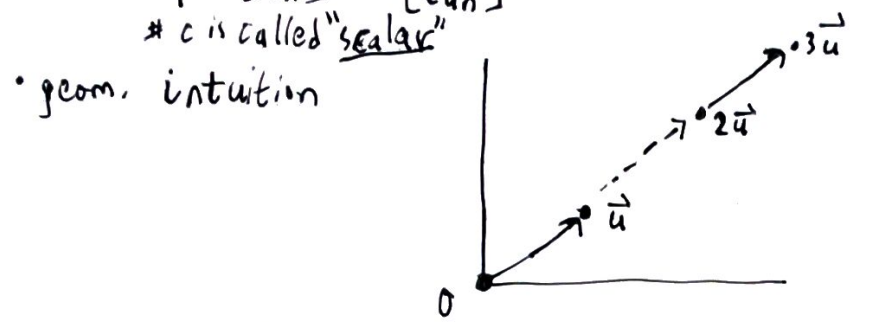 # c is called "scalar"
• geom. intuition
3u⃗
2u⃗
u⃗
0